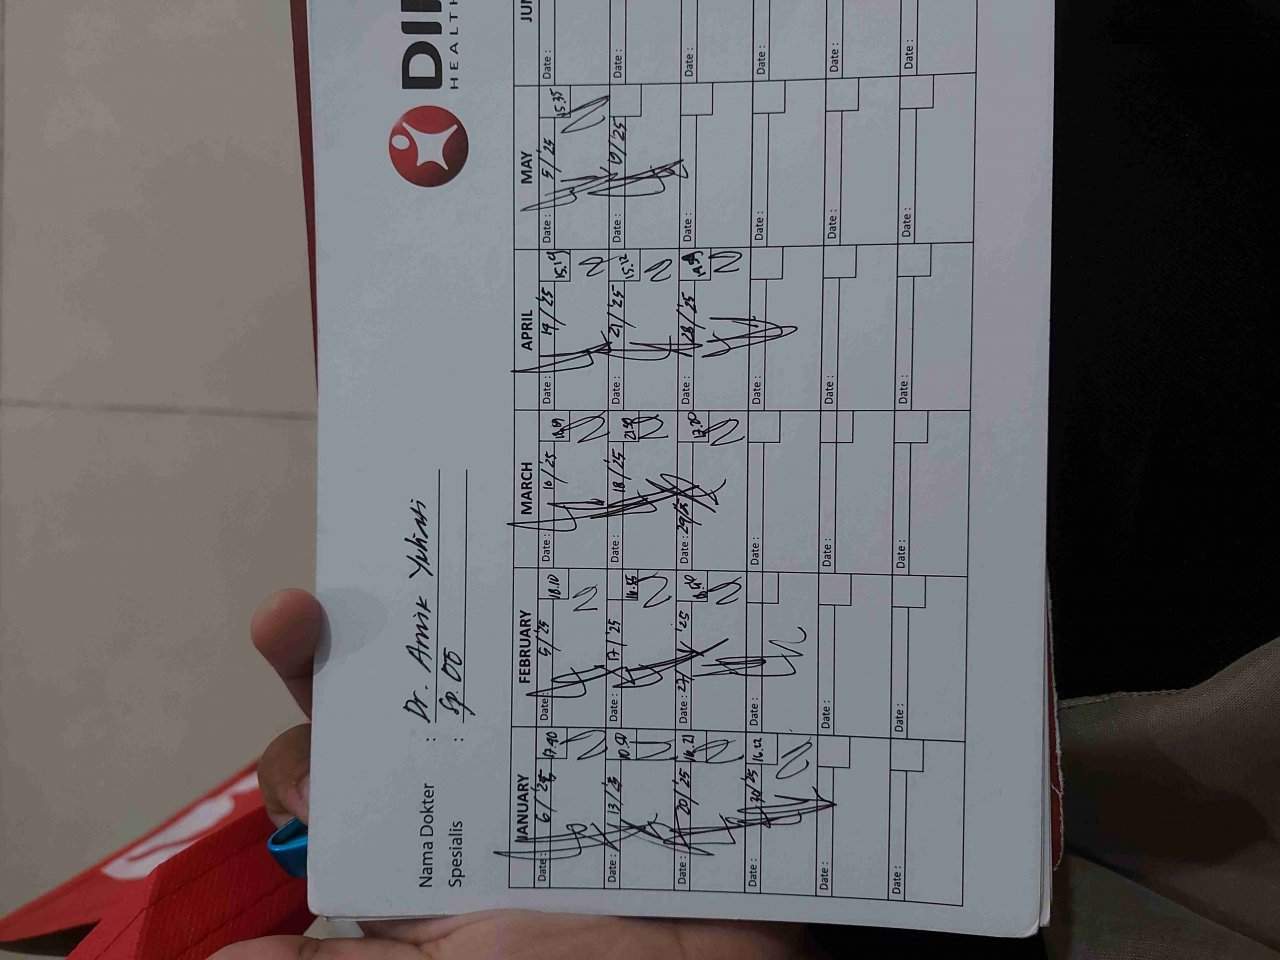 DI
HEALTH
Nama Dokter : Dr. Anik Yuliati
Spesialis : Sp. OG
JANUARY FEBRUARY MARCH APRIL MAY JUN
Date : 6/'25 17.40 Date : 5/'25 18.10 Date : 10/'25 Date : 19/'25 15.19 Date : 5/'25 15.35 Date :
Date : 13/'25 Date : 17/'25 Date : 18/'25 21.30 Date : 21/'25 15.12 Date : 19/'25 Date :
Date : 20/'25 Date : 27/'25 Date : 29/'25 17.20 Date : 28/'25 Date : Date :
Date : 30/'25 16.22 Date : Date : Date : Date :
Date : Date : Date : Date : Date : Date :
Date : Date : Date : Date : Date : Date :